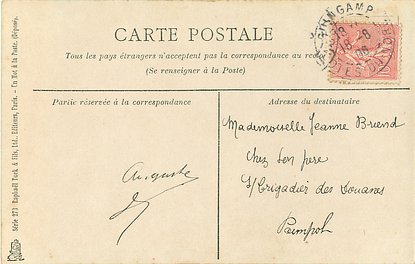 CARTE POSTALE
Tous les pays étrangers n'acceptent pas la correspondance au
(Se renseigner à la Poste)
GUINGAMP
18
8
08
CÔTES DU NORD
Partie réservée à la correspondance
Adresse du destinataire
Auguste
Mademoiselle Jeanne Briend
Chez Son pere
S/Brigadier des Douanes
Paimpol
Série 273 Raphaël Tuck & fils, Ltd., Editeurs, Paris. - Un Mot à la Poste. (Déposé).